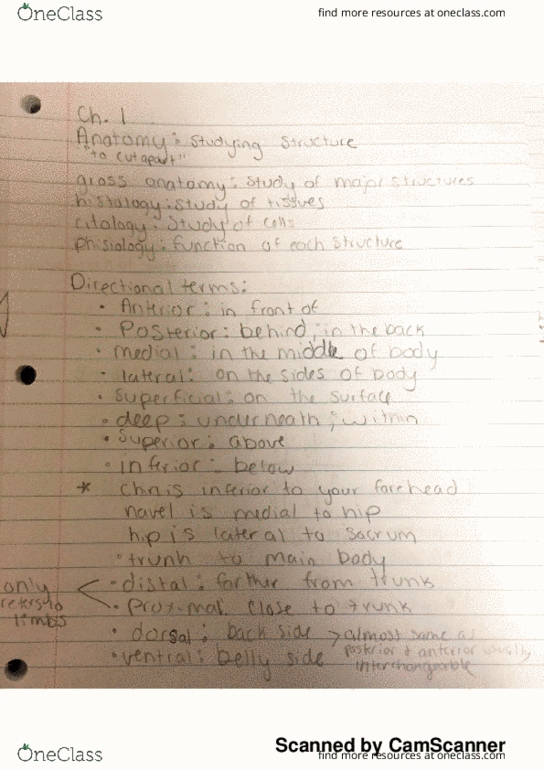 OneClass
find more resources at oneclass.com
Ch. 1
Anatomy: Studying Structure
"to cut apart"
gross anatomy: study of major structures
histology: study of tissues
citology: study of cells
phisiology: function of each structure
Directional terms:
• Anterior: in front of
• Posterior: behind; in the back
• medial: in the middle of body
• lateral: on the sides of body
• superficial: on the surface
• deep: underneath; within
• superior: above
• inferior: below
* Chn is inferior to your forehead
navel is medial to hip
hip is lateral to sacrum
• trunk to main body
• distal: farther from trunk
• Proximal: close to trunk
only
refers to
limbs
• dorsal: back side > almost same as
posterior & anterior usually
interchangeable
• ventral: belly side
Scanned by CamScanner
OneClass
find more resources at oneclass.com